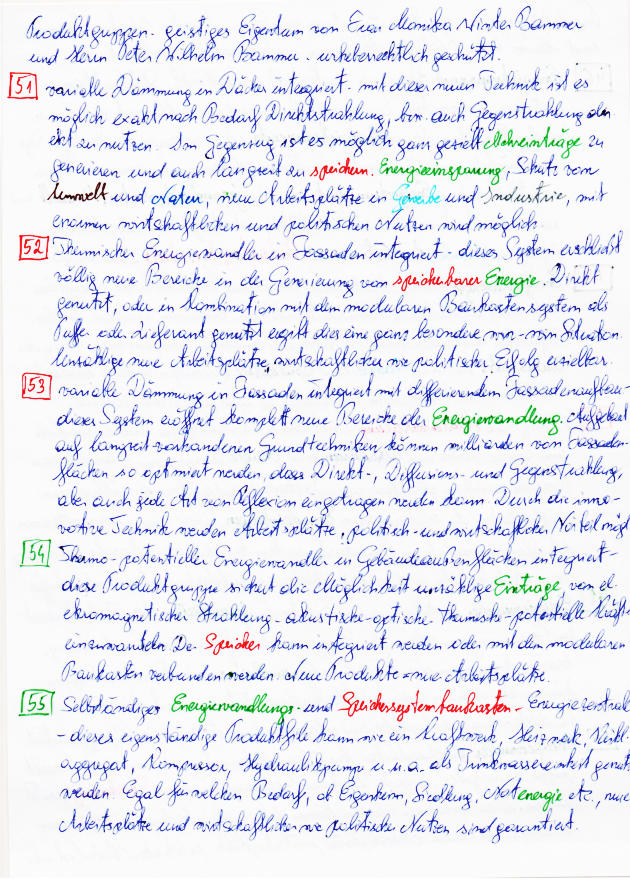 Produktgruppen - geistiges Eigentum von Frau Monika Winter Bammer
und Herrn Peter Wilhelm Bammer - urheberrechtlich geschützt.
51 variable Dämmung in Dächer integriert - mit dieser neuen Technik ist es
möglich exakt nach Bedarf Direktstrahlung, bzw. auch Gegenstrahlung
zu nutzen. Im Gegenzug ist es möglich ganz gezielt Mehreinträge zu
generieren und auch langzeit zu speichern. Energieeinsparung, Schutz von
Umwelt und Natur, neue Arbeitsplätze in Gewerbe und Industrie, mit
enormen wirtschaftlichen und politischen Nutzen wird möglich.
52 Thermischer Energiewandler in Fassaden integriert - dieses System erschließt
völlig neue Bereiche in der Generierung von speicherbarer Energie. Direkt
genutzt, oder in Kombination mit dem modularen Baukastensystem als
Puffer oder Lieferant genutzt ergibt dies eine ganz besondere win-win Situation.
Unzählige neue Arbeitsplätze, wirtschaftlicher wie politischer Erfolg erzielbar.
53 variable Dämmung in Fassaden integriert mit differierendem Fassadenaufbau -
dieses System eröffnet komplett neue Bereiche der Energiewandlung. Aufgebaut
auf langzeit vorhandenen Grundtechniken können milliarden von Fassaden-
flächen so optimiert werden, dass Direkt-, Diffusions- und Gegenstrahlung,
aber auch jede Art von Reflexion eingetragen werden kann. Durch die inno-
vative Technik werden Arbeitsplätze, politisch- und wirtschaftlicher Vorteil mögl
54 Thermo-potentieller Energiewandler in Gebäudeaußenflächen integriert -
diese Produktgruppe sichert die Möglichkeit unzählige Einträge, von el-
ektromagnetischer Strahlung - akustische - optische - thermische - potentielle Kräfte
einzuwandeln. Der Speicher kann integriert werden oder mit dem modularen
Baukasten verbunden werden. Neue Produkte = neue Arbeitsplätze.
55 Selbständiges Energiewandlungs- und Speichersystembaukasten - Energiezentrale
- dieses eigenständige Produktfile kann wie ein Kraftwerk, Heizwerk,
aggregat, Kompressor, Hydraulikpumpe u.u.a. als genutzt
werden. Egal für welchen Bedarf, ob Eigenheim, Siedlung, Notenergie etc., neue
Arbeitsplätze und wirtschaftlicher wie politischer Nutzen sind garantiert.